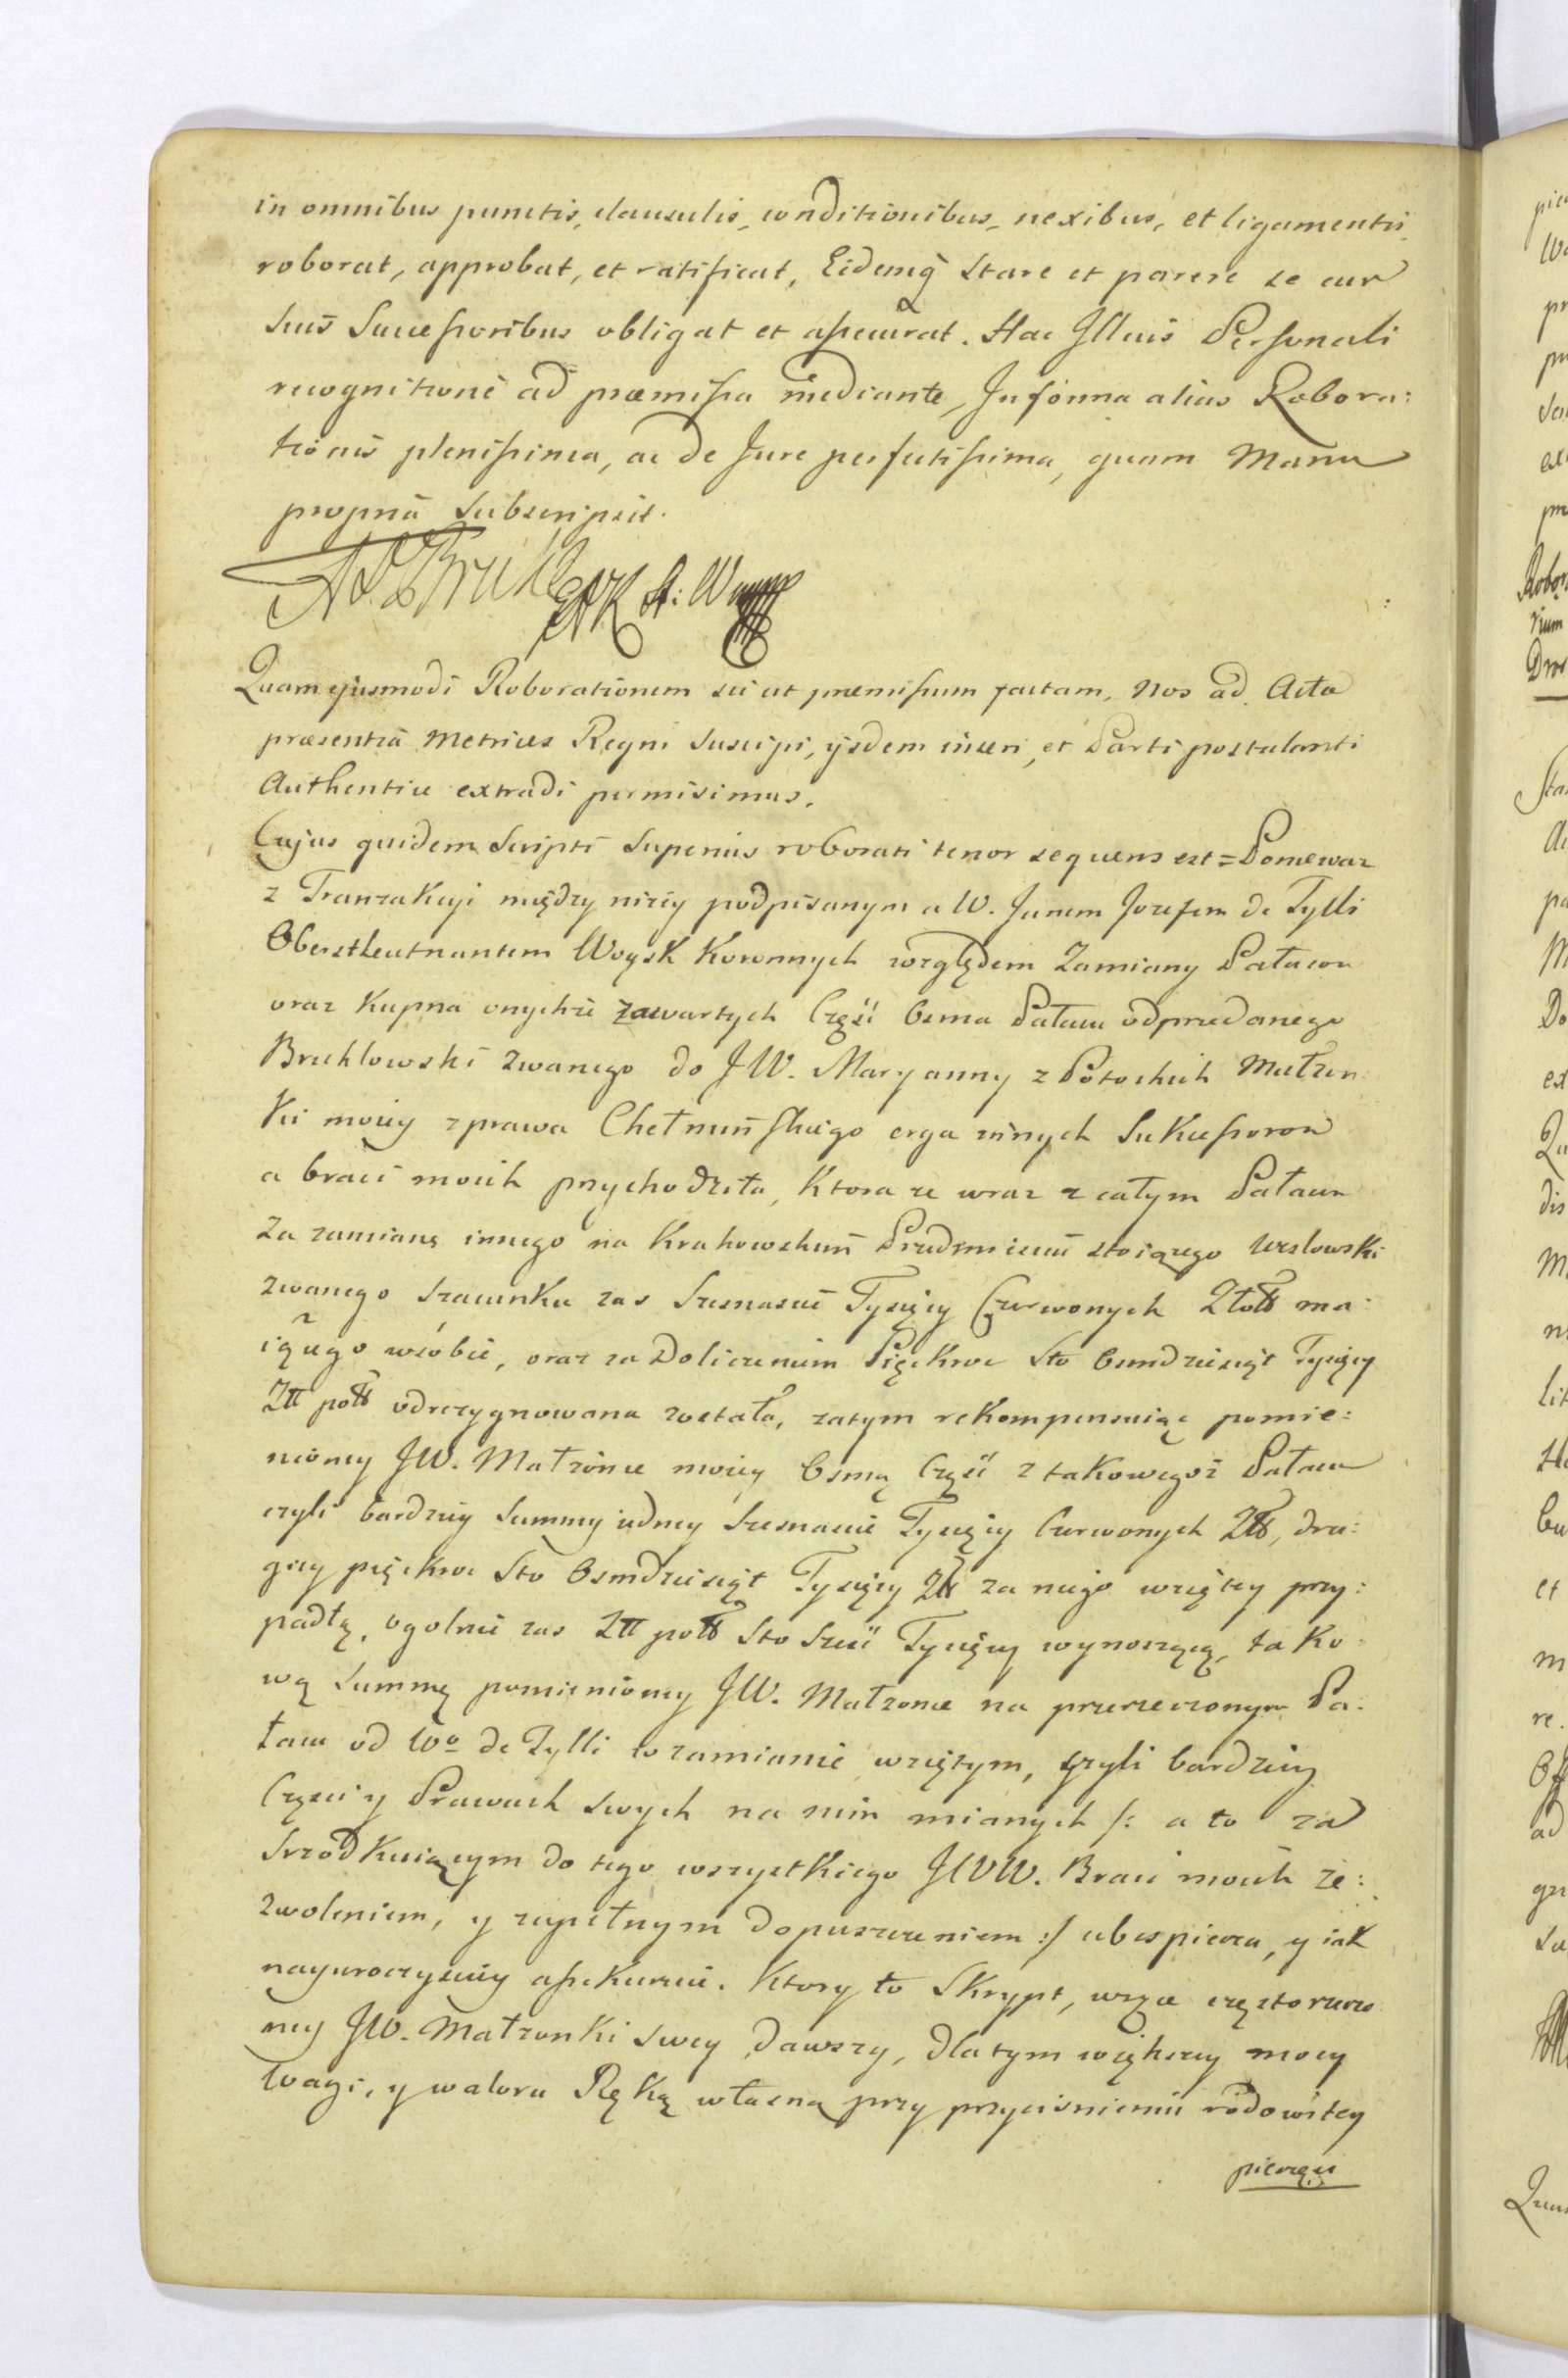 in omnibus punctis, clausulis, conditionibus, nexibus, et ligamentis
roborat, approbat, et ratificat, Eidemq̀ stare et parere se cum
suis Successoribus obligat et assecurat. Hac Illius Personali
recognitione ad præmissa mediante, In forma alias Robora:
tionis plenissima, ac de Jure perfectissima, quam Manu
propriā subscripsit.
A F Bruhl
Quam ejusmodi Roborationem sic ut præmissum factam, Nos ad Acta
præsentia Metrices Regni suscipi, ijsdem inseri, et Parti postulanti
Authentice extradi permisimus.
Cujus quidem Scripti superius roborati tenor sequens est = Ponieważ
z Tranzakcyi między niżey podpisanym a W. Janem Jozefem de Tylli
Oberstleutnantem Woysk Koronnych względem Zamiany Pałacow
oraz Kupna onychże zawartych Część Osma Pałacu odprzedanego
Bruhlowski zwanego do JW. Maryanny z Potockich Małżon:
ki moiey z prawa Chełmińskiego erga innych Sukcessorow
a braci moich przychodziła, Ktora że wraz z całym Pałacem
za zamianę innego na Krakowskim Przedmieściu stoiącego Wesslowski
zwanego szacunku zas Szesnascie Tysięcy Czerwonych Złottt ma:
iącego wsobie, oraz za Doliczeniem Pięćkroc Sto Osmdziesiąt Tysięcy
Złł polł odrezygnowana została, zatym rekompensuiąc pomie:
nioney JW. Małżonce moiey Osmą Część z takowegoż Pałacu
czyli bardziey Summy iedney Szesnascie Tysięcy Czerwonych Złł, dru:
giey pięćkroc Sto Osmdziesiąt Tysięcy Złł za niego wziętey przy:
padłą, ogolnie zas Złł polł Sto Szesc Tysięcy wynoszącą, tako:
wą Summę pomienioney JW. Małzonce na przerzeczonym Pa:
łacu od Wo de Tylli w zamianie wziętym, czyli bardziey
Części y Prawach swych na nim mianych /: a to za
Srzodkuiącym do tego wszystkiego JWW. Braci moich ze:
zwoleniem, y zupełnym dopuszczeniem :/ ubespiecza, y iak
nayuroczysciey assekuruie. Ktory to Skrypt, w ręce częstorzeczo
ney JW. Małzonki swey dawszy, dla tym większey mocy
wagi, y waloru Ręką własną przy przycisnieniu rodowitey
pieczęci